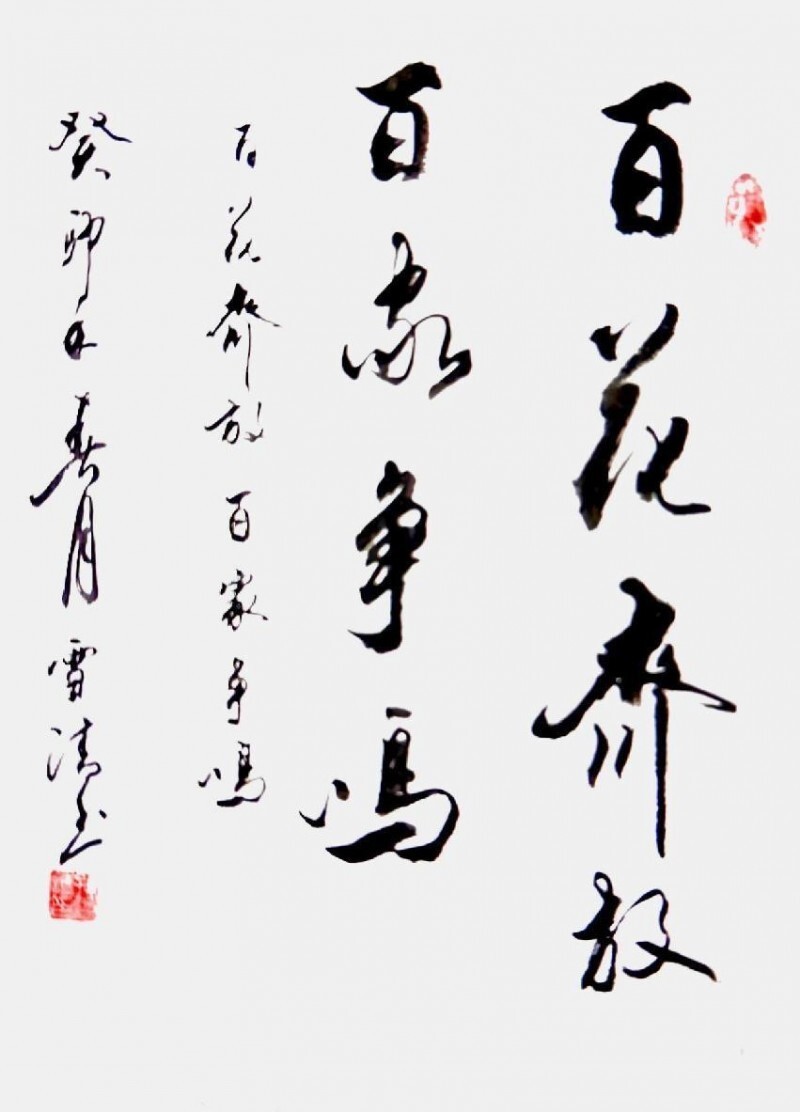 百花齐放
百家争鸣
百花齐放 百家争鸣
癸卯年春月雪清书